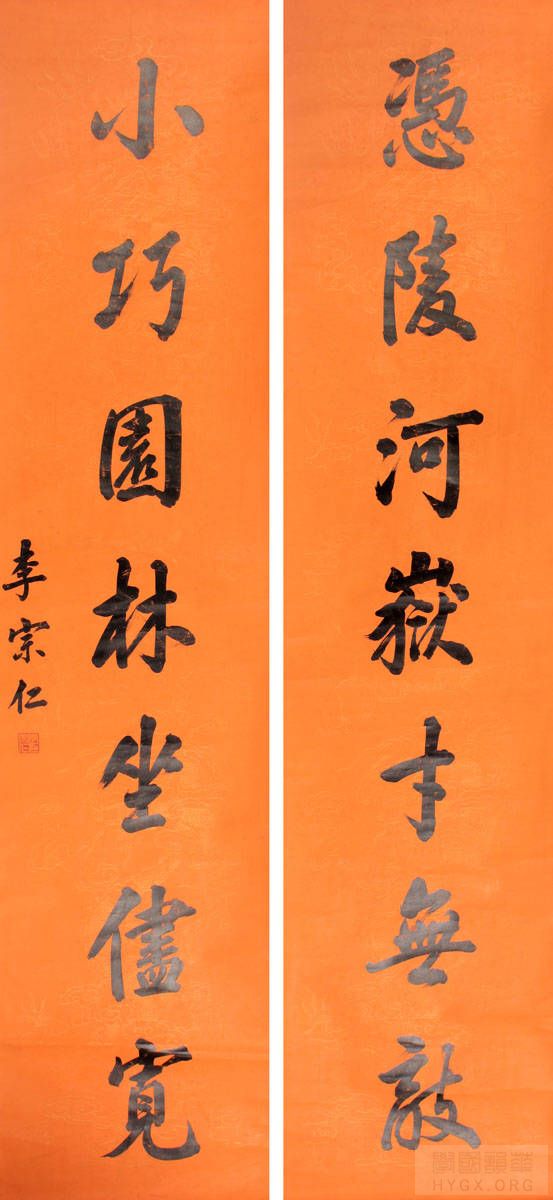 憑陵河嶽才無敵
小巧園林坐儘寬
李宗仁
華韻國學
HYGX.ORG